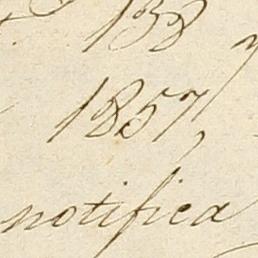 138
1857,
notifica